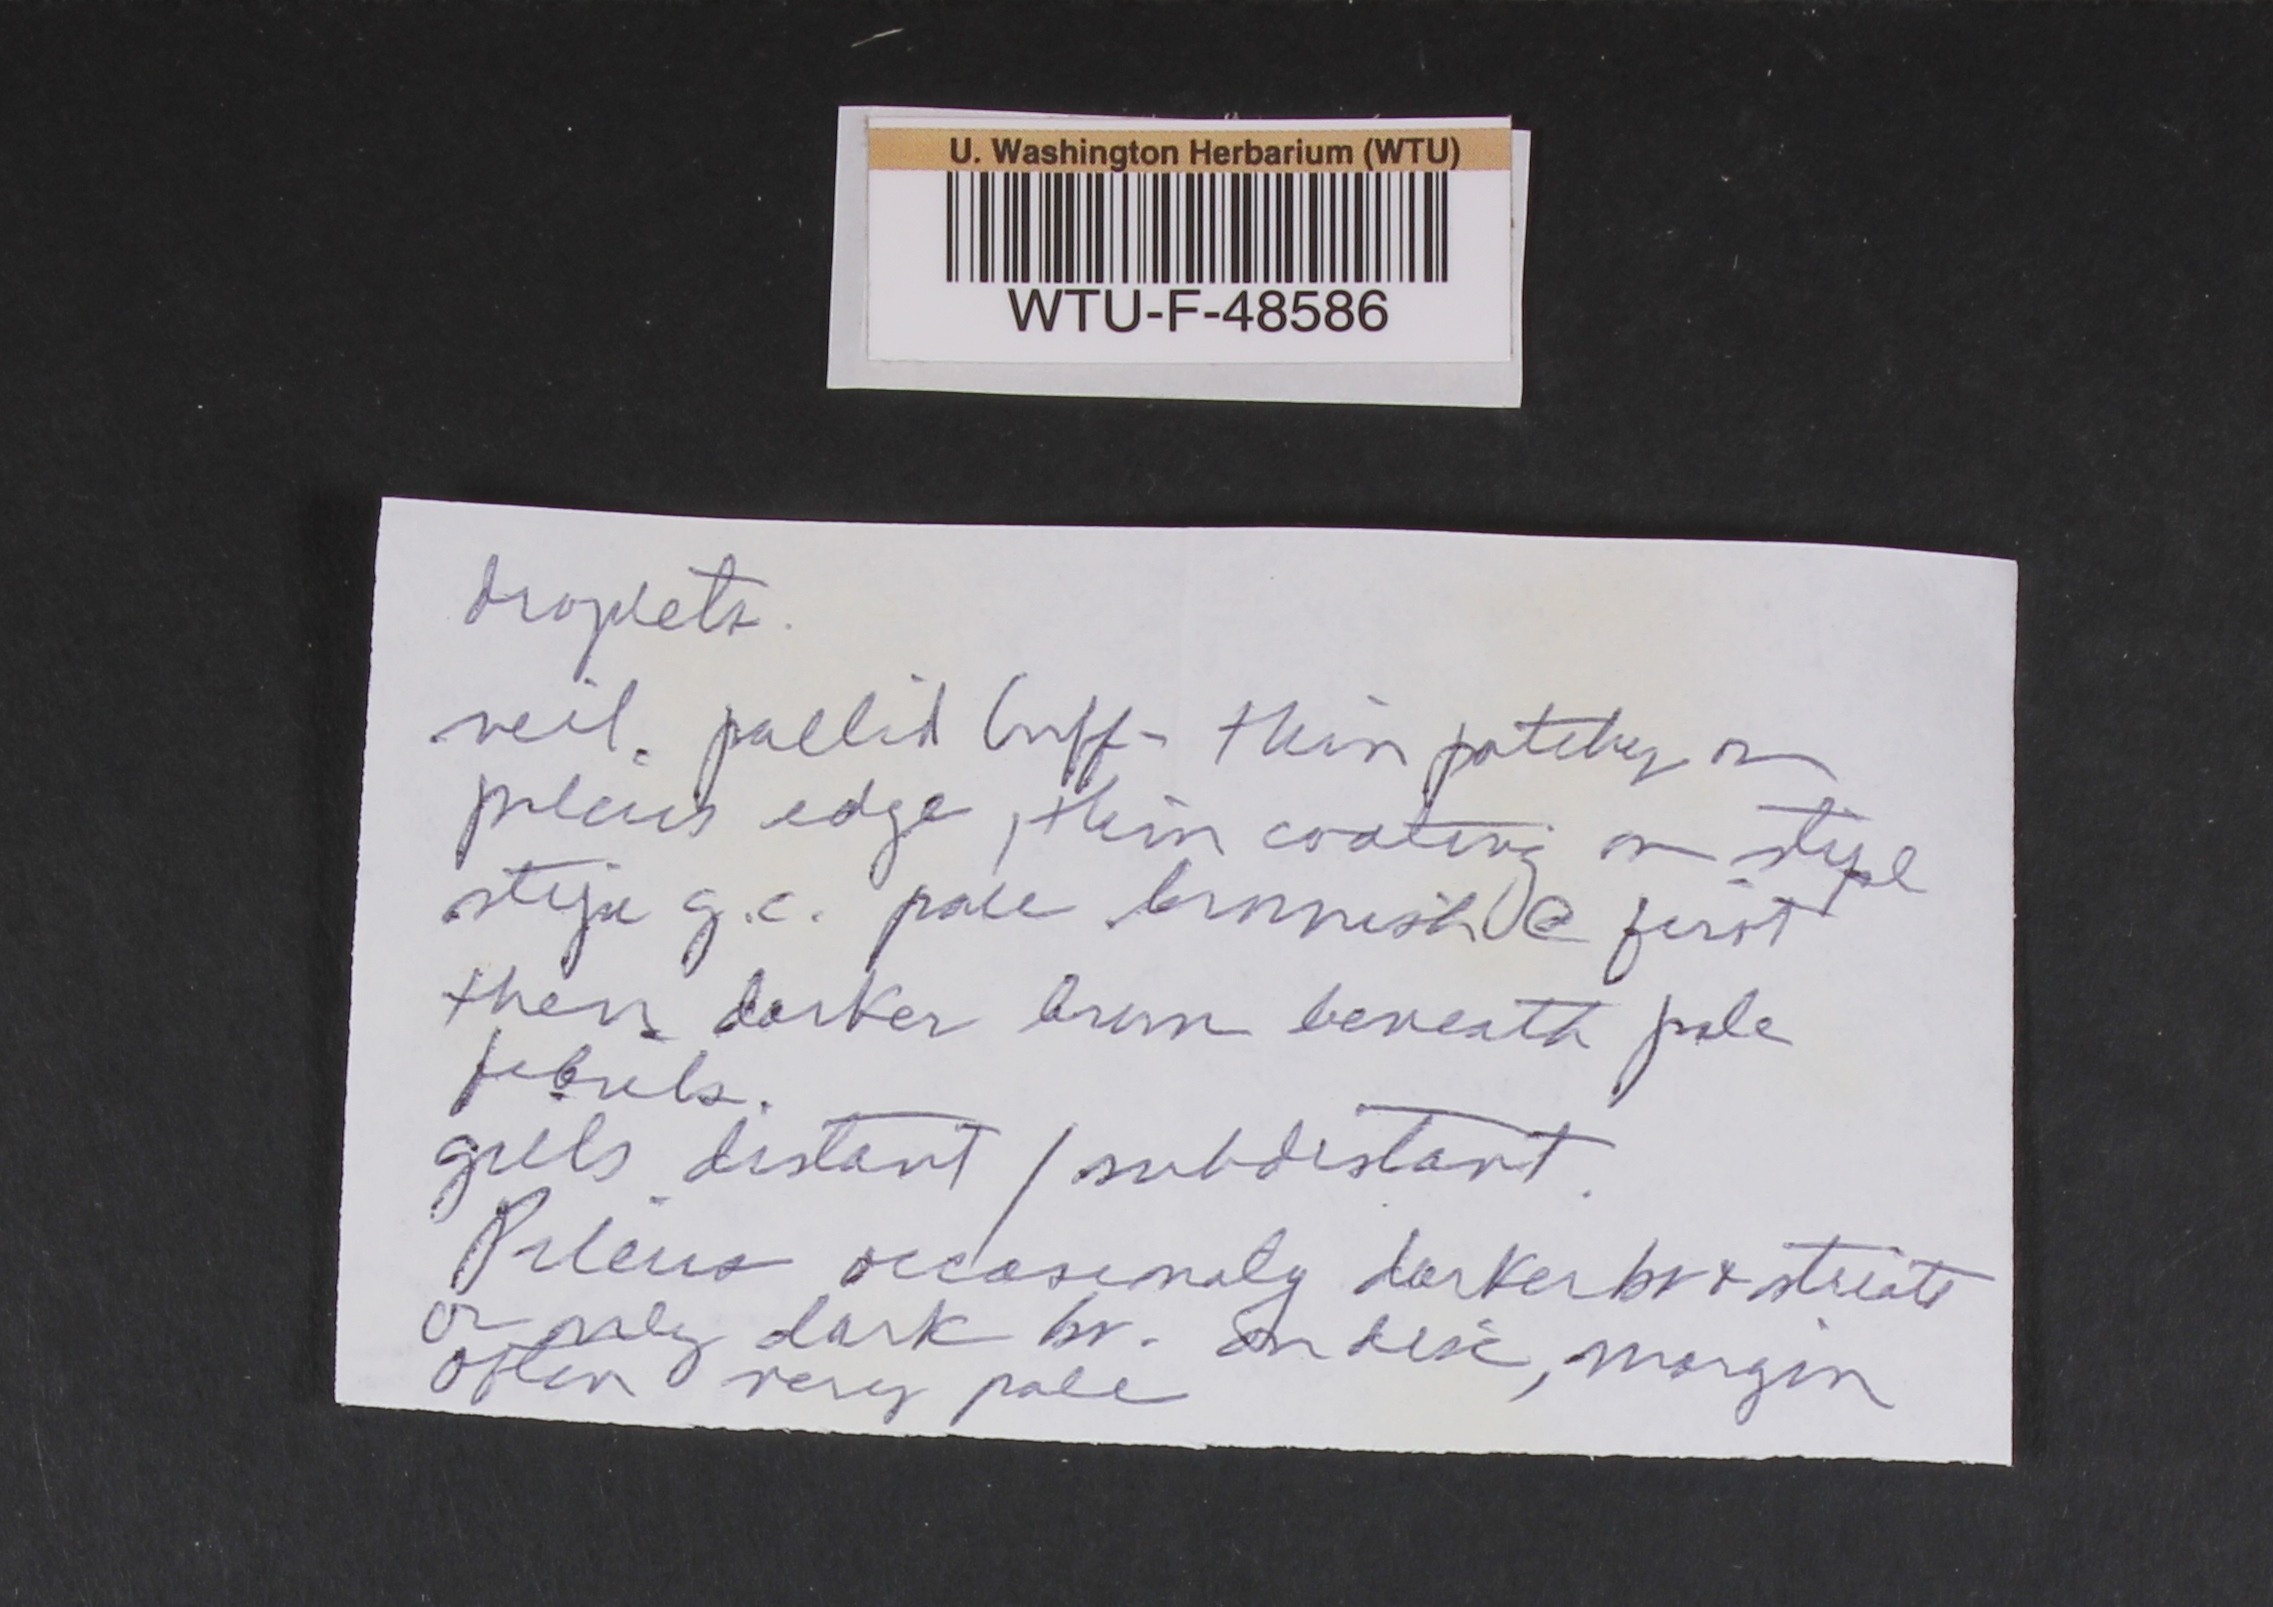 U. Washington Herbarium (WTU)
WTU-F-48586
droplets.
veil. pallid buff - thin patchy on
pileus edge, thin coating on stipe
stipe g.c. pale brownish @ first
then darker brown beneath pale
fibrils.
gills distant / subdistant.
Pileus occasionaly darker br + striate
or only dark br. on disc, margin
often very pale